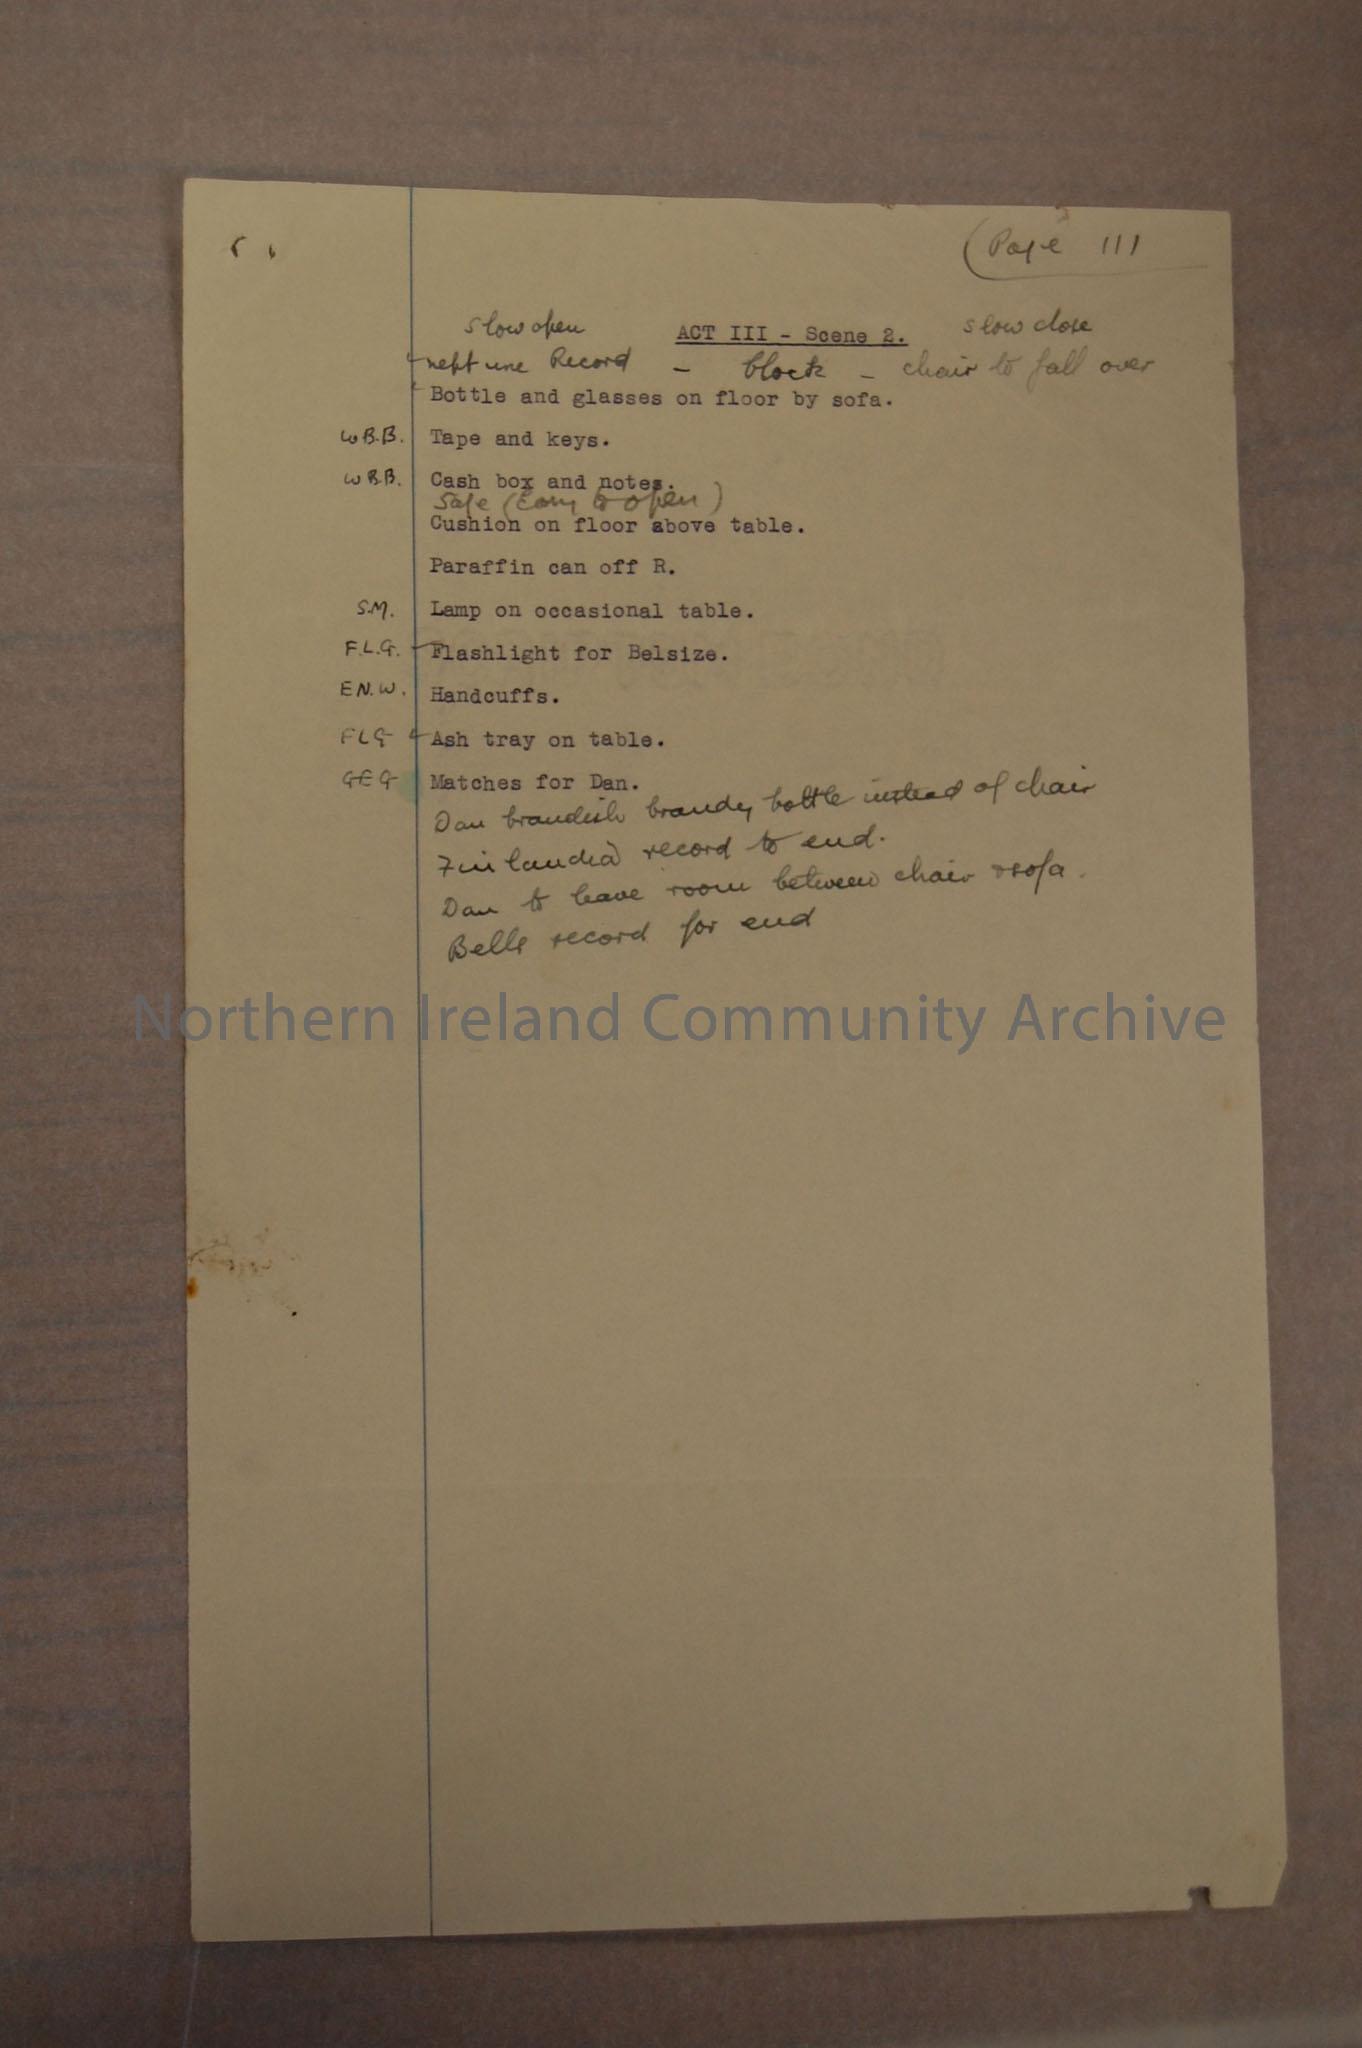 (Page 111
slow open ACT III - Scene 2. slow close
Neptune Record - block - chair to fall over
Bottle and glasses on floor by sofa.
W.B.B. Tape and keys.
W.B.B. Cash box and notes.
Safe (easy to open)
Cushion on floor above table.
Paraffin can off R.
S.M. Lamp on occasional table.
F.L.G. Flashlight for Belsize.
E.N.W. Handcuffs.
FLG Ash tray on table.
GEG Matches for Dan.
Dan brandish brandy bottle instead of chair
Finlandia record to end.
Dan to leave room between chair & sofa.
Bells record for end
Northern Ireland Community Archive